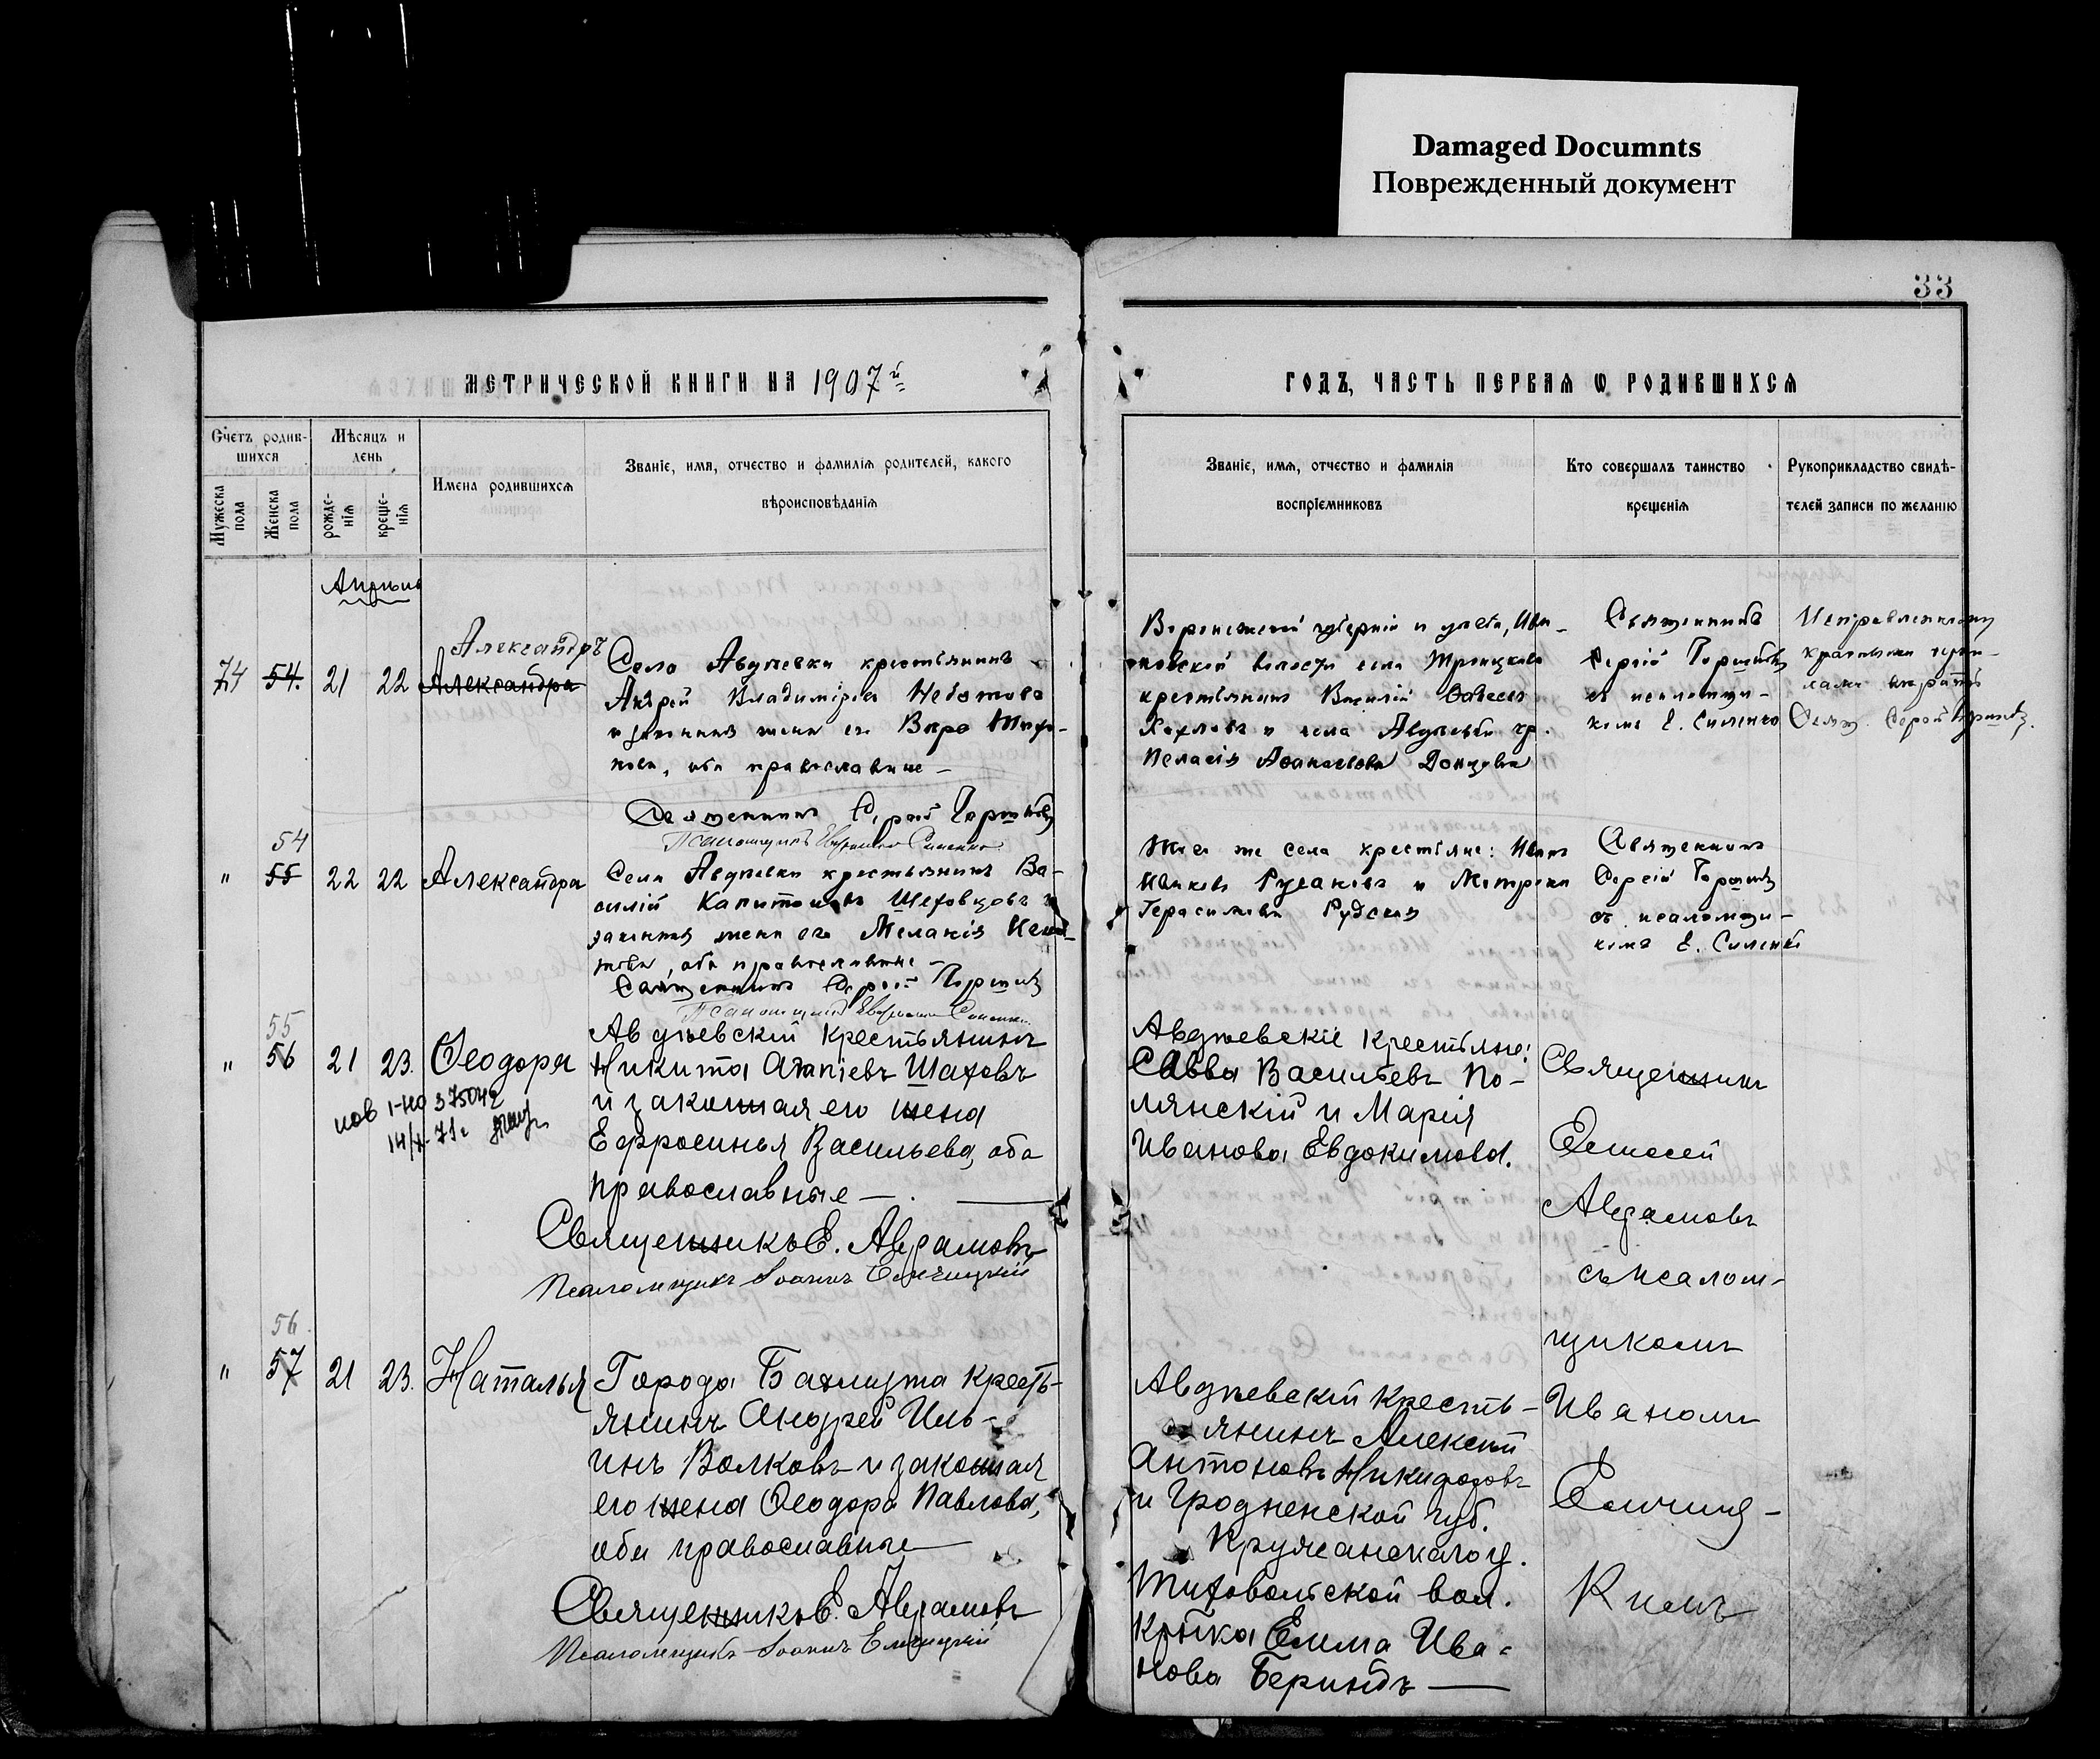 Damaged Documnts
Поврежденный документ
33
МЕТРИЧЕСКОЙ КНИГИ НА 1907й
ГОДЪ, ЧАСТЬ ПЕРВАЯ Ѡ РОДИВШИХСЯ
Счетъ родив-
шихся
Мужеска пола
Женска пола
Мѣсяцъ и
день
рожде-
нія
креще-
нія
Имена родившихся
Званіе, имя, отчество и фамилія родителей, какого
вѣроисповѣданія
Званіе, имя, отчество и фамилія
воспріемниковъ
Кто совершалъ таинство
крещенія
Рукоприкладство свидѣ-
телей записи по желанію
Апрѣль
Александръ
74 54. 21 22 Александра
Село Авдѣевки крестьянинъ
Андрей Владиміровъ
и законная жена его Вѣра Тихо-
нова, оба православные
Священникъ Сергій Горшковъ
Псаломщикъ Силенко
Воронежской губерніи и уѣзда, Ива-
новской волости села Троицкаго
крестьянинъ Василій
Хохловъ и села Авдѣевки кр.
Пелагія Аѳанасьева Донцова
Священникъ
Сергій Горшковъ
съ псаломщи-
комъ Е. Силенко
Исправленному
Свящ. Сергій Горшковъ
54
" 55 22 22 Александра
Села Авдѣевки крестьянинъ Ва-
силій Капитоновъ Шеховцовъ и
законная жена его Меланія
оба православные
Священникъ Сергій Горшковъ
Псаломщикъ Силенко
Того же села крестьяне: Иванъ
Ивановъ Русановъ и Матрона
Герасимова Рудская
Священникъ
Сергій Горшковъ
съ псаломщи-
комъ Е. Силенко
55
" 56 21 23. Ѳеодора
нов 1-НО 375042
Авдѣевскій крестьянинъ
Никита Агапіевъ Шаховъ
и законная его жена
Ефросинья Васильева, оба
православные
Священникъ Е. Авраамовъ
Псаломщикъ Іоаннъ Ельчицкій
Авдѣевскіе крестьяне:
Савва Васильевъ По-
лянскій и Марія
Иванова Евдокимова.
Священникъ
Авраамовъ
съ псалом-
щикомъ
Иваномъ
Ельчиц-
кимъ
56.
" 57 21 23. Наталья
Города Бахмута кресть-
янинъ Андрей Иль-
инъ Волковъ и законная
его жена Ѳеодора Павлова,
оба православные
Священникъ Е. Авраамовъ
Псаломщикъ Іоаннъ Ельчицкій
Авдѣевскій кресть-
янинъ Алексѣй
Антоновъ Никифоровъ
и Гродненской губ.
Пружанскаго у.
Тиховольской вол.
кр-нка Емма Ива-
нова Бериндъ